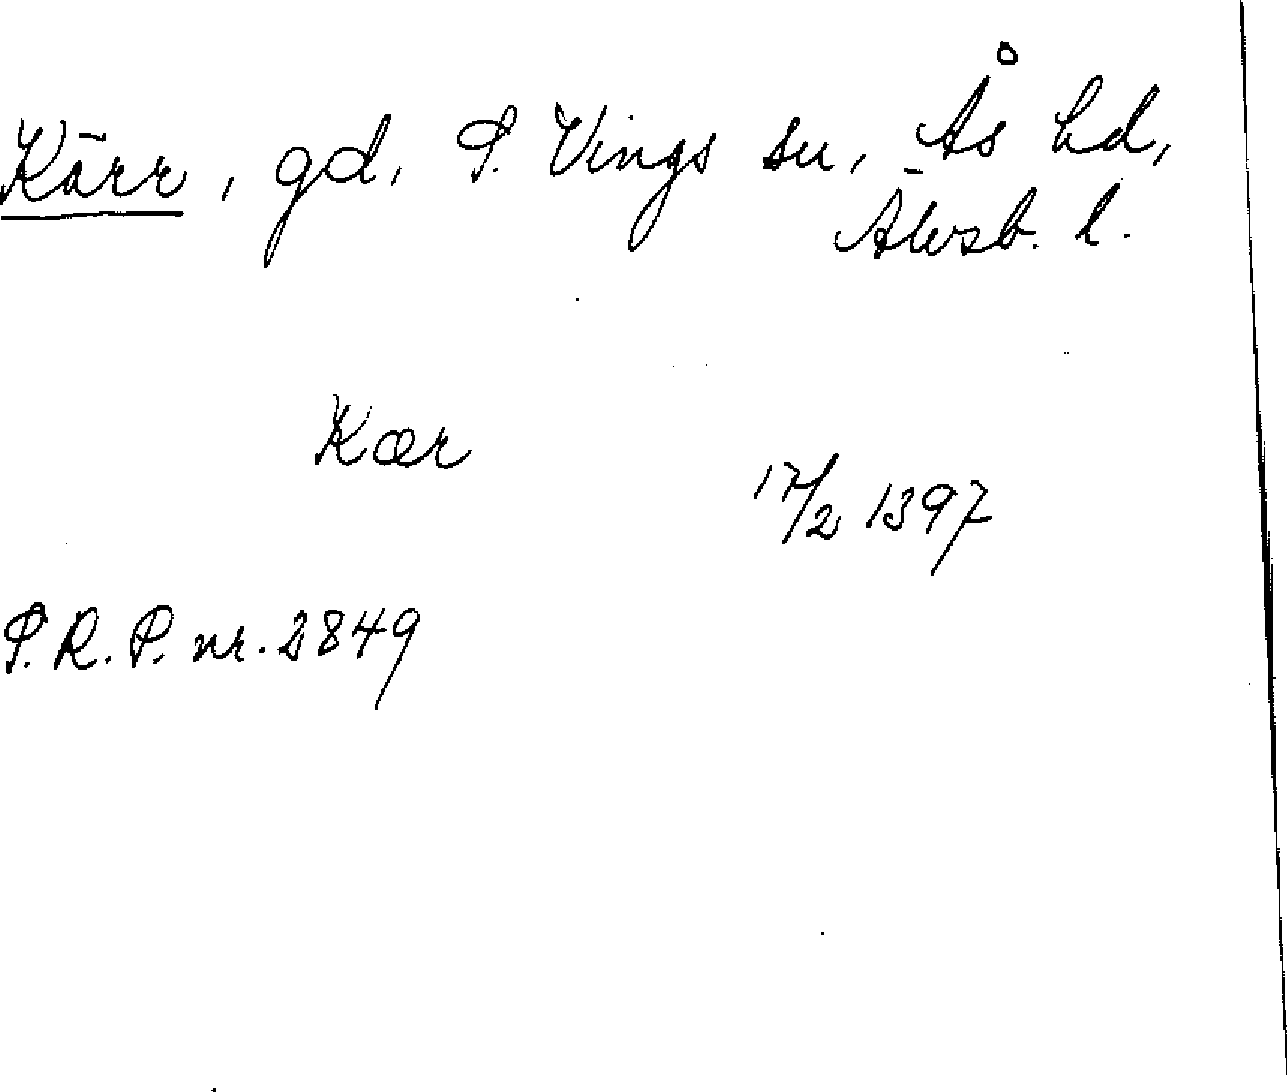 Kärr, gd, S. Vings sn, Ås hd,
Älvsb. l.
Kær
17/2 1397
S. R. P. nr. 2849